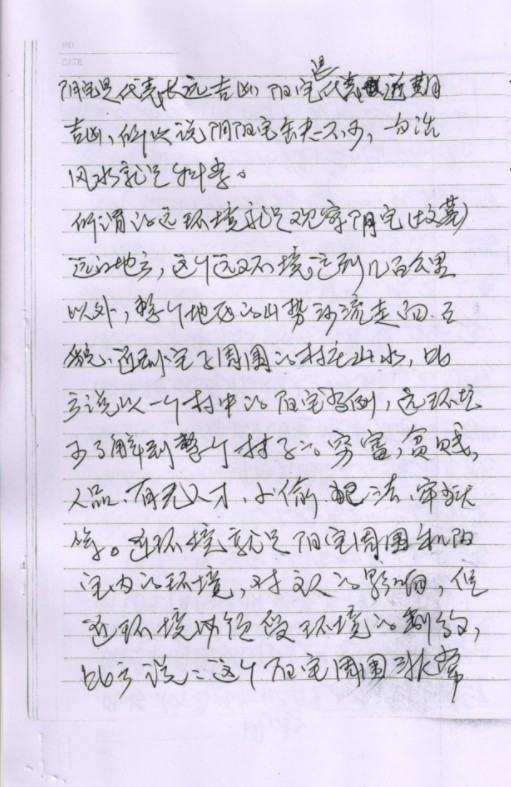 NO
DATE
阴宅是代表长远吉凶 阳宅是代表近期
吉凶，所以说阴阳宅缺一不少，
风水就是科学。
所谓的远环境就是观察阴宅（坟墓）
远的地方，这个远环境达到几百公里
以外，整个地形的山势河流走向.
近到宅子周围的村庄山水，比
方说以一个村中的阳宅为例，远环境
可了解到整个村子的穷富，贫贱，
人品.有无人才.小偷.犯法.牢狱
等。近环境就是阳宅周围和阳
宅内的环境，对主人的影响，但
近环境必须受环境的制约，
比方说：这个阳宅周围非常